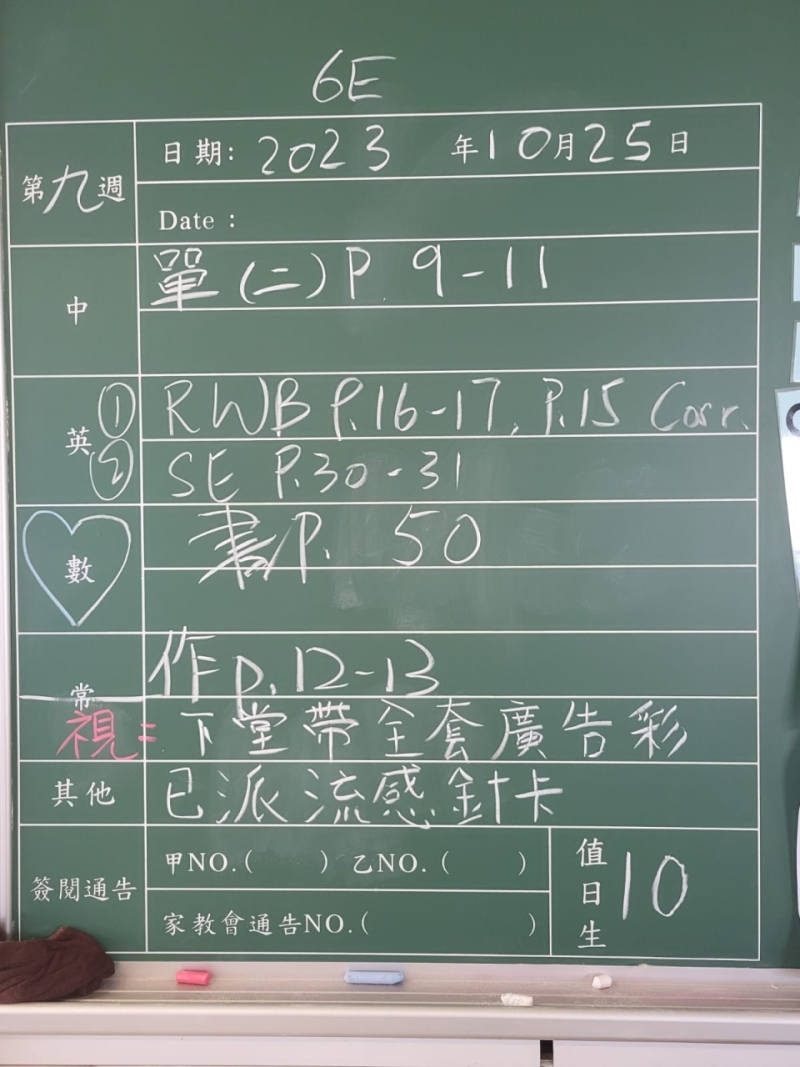 6E
第九週
日期: 2023 年10月25日
Date :
中
單(二)P. 9-11
英
① RWB P.16-17, P.15 Corr.
② SE P.30-31
數
書P. 50
常
作p.12-13
視= 下堂帶全套廣告彩
其他
已派流感針卡
簽閱通告
甲NO.( ) 乙NO.( )
家教會通告NO.( )
值日生 10